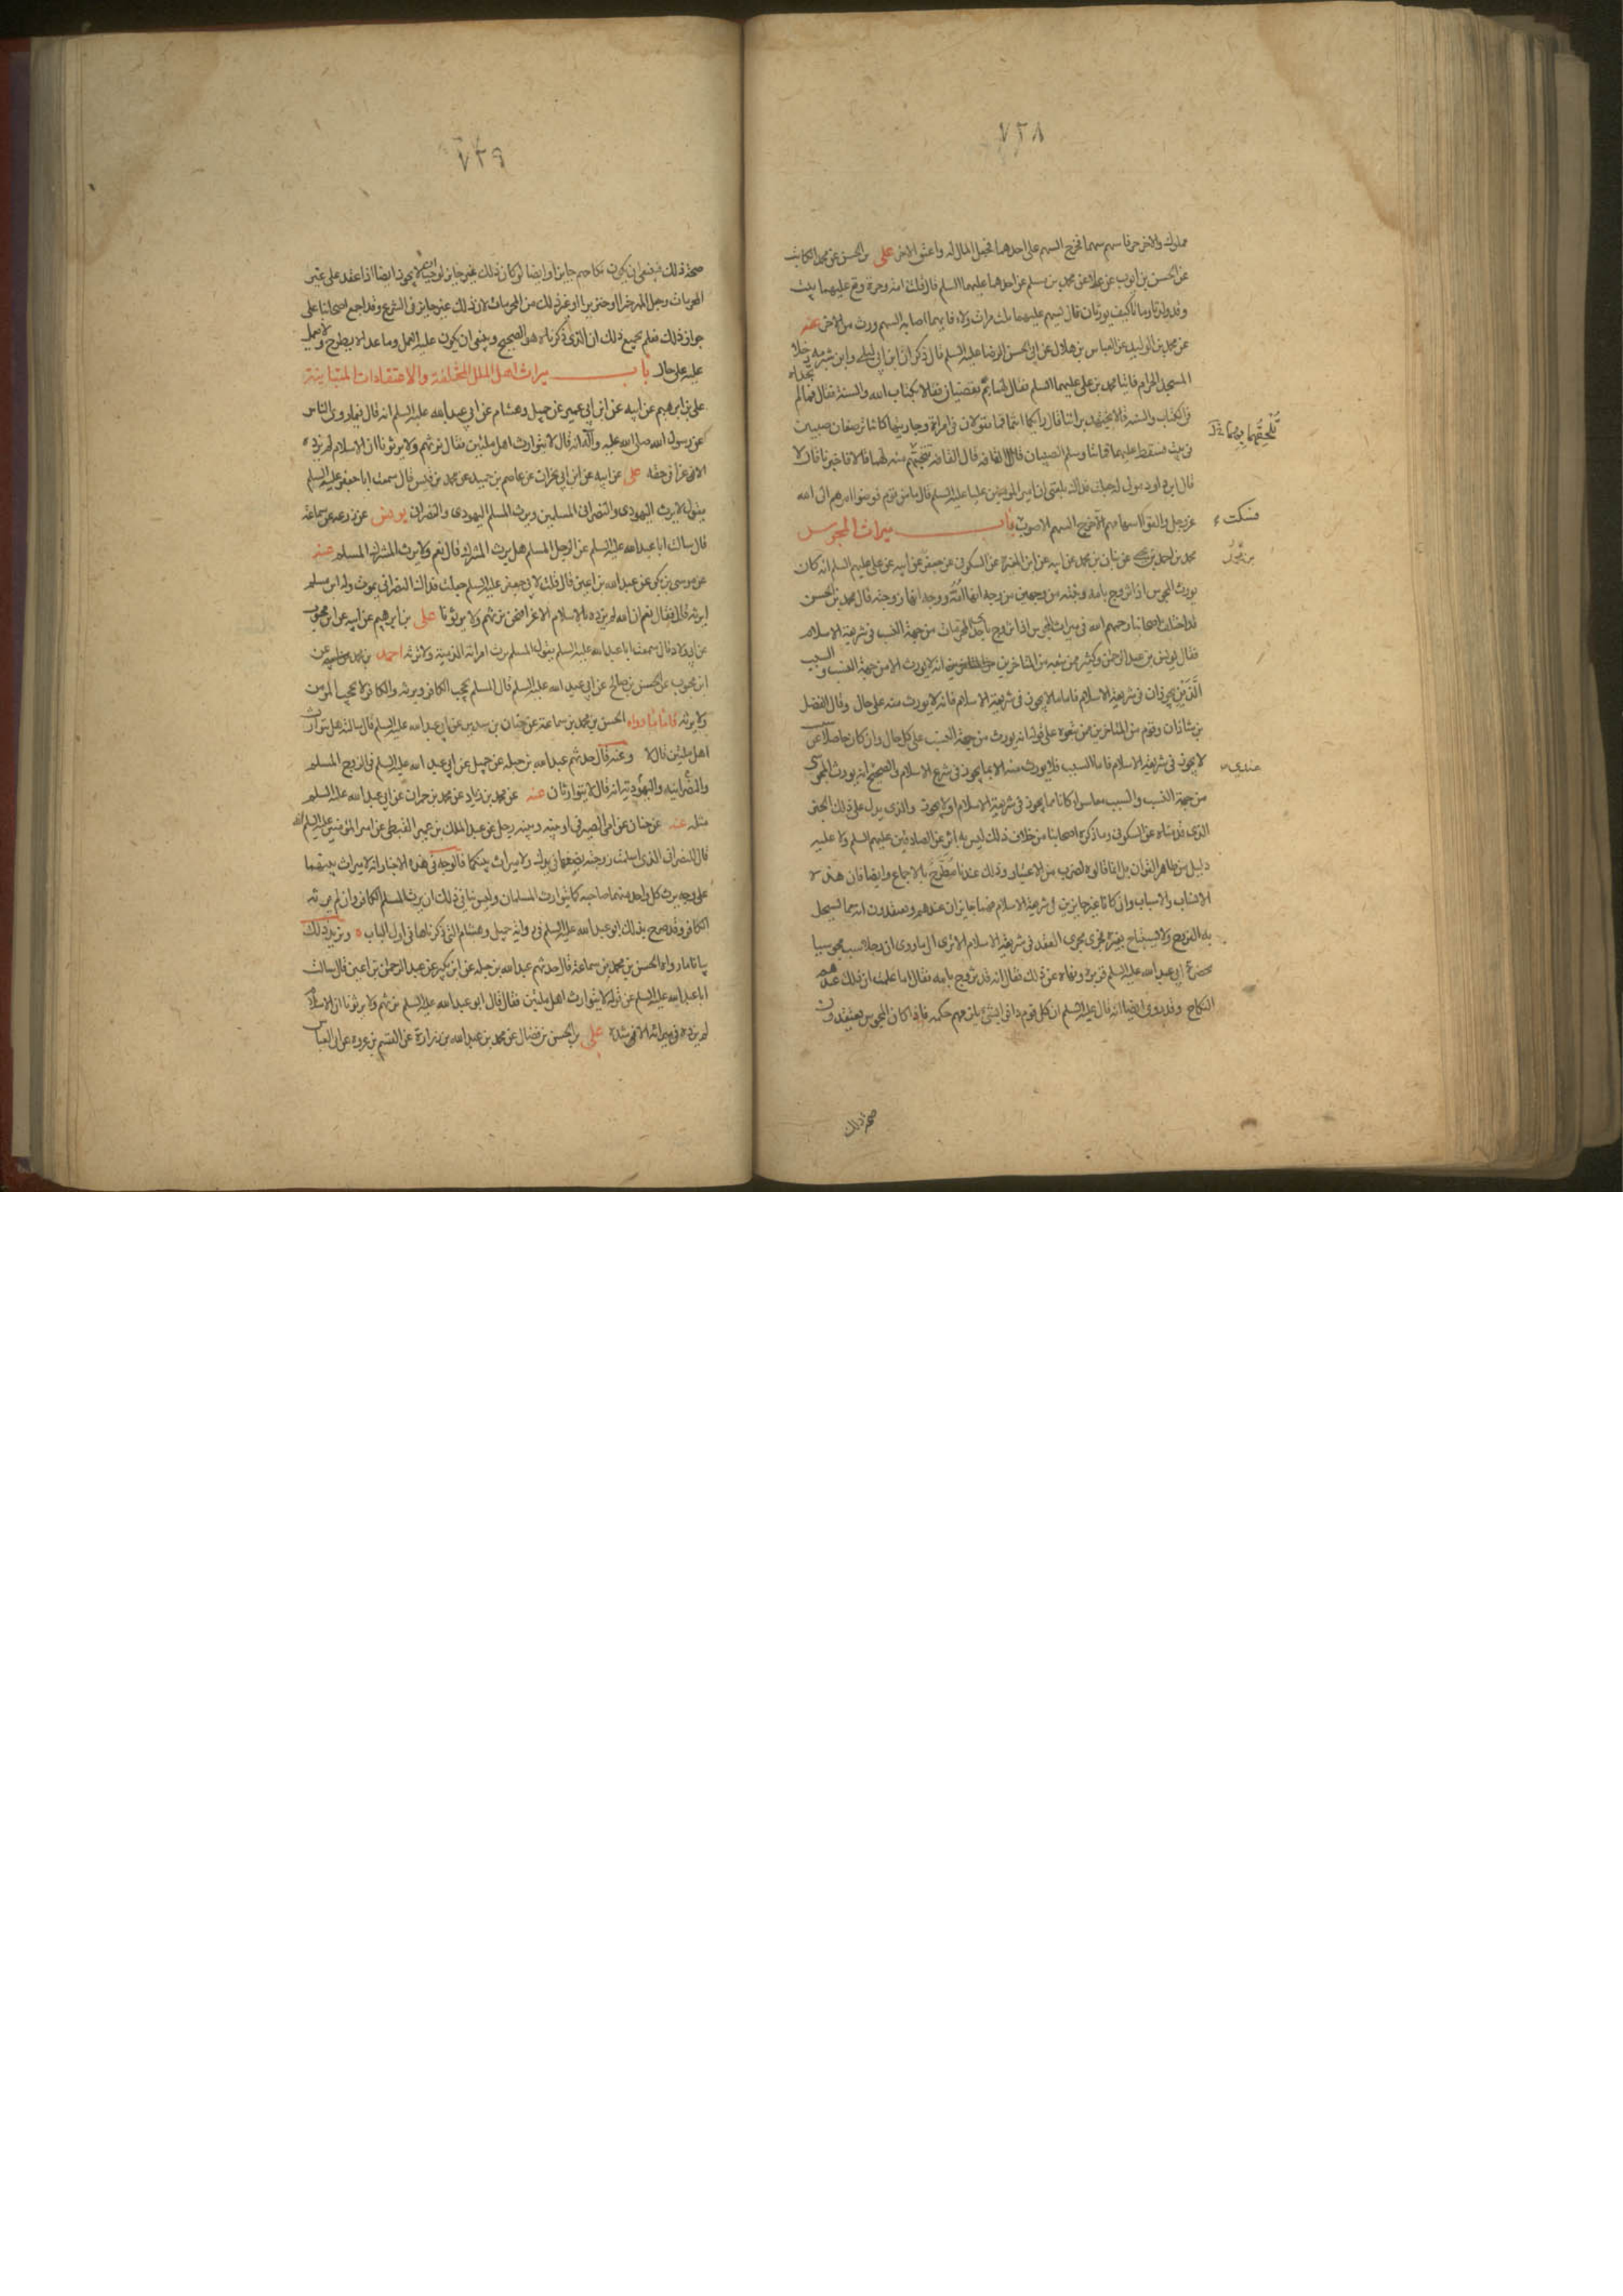 ٧٢٨
مملوك والاخر حر فاسهم بينهما فخرج السهم على احدهما فجعل المال له واعتق الاخر على بن الحسن عن محمد الكاتب
عن الحسن بن ايوب عن علا عن محمد بن مسلم عن احدهما عليهما السلم قال قلت امة وحرة وقع عليهما بيت
وقد ولدتا وماتا كيف يورثان قال يسهم عليهما ثلث مرات ولاء فايهما اصابه السهم ورث من الاخر عنه
عن محمد بن الوليد عن العباس بن هلال عن ابي الحسن الرضا عليه السلم قال ذكر ان ابن ابي ليلى وابن شبرمه دخلا
المسجد الحرام فاتيا محمد بن علي عليهما السلم فقال لهما بم تقضيان فقالا بكتاب الله والسنة فقال فما لم تجداه
في الكتاب والسنه قالا نجتهد براينا قال رايكما انتما فما تقولان في امراة وجاريتها كانتا ترضعان صبيين
في بيت فسقط عليهما فماتتا وسلم الصبيان قالا القافه قال القافه يتجهم منه لهما قالا فاخبرنا قال لا
قال ابن داود مولى له جعلت فداك بلغني ان امير المؤمنين عليا عليه السلم قال ما من قوم فوضوا امرهم الى الله
عز وجل والقوا سهامهم الا خرج السهم الاصوب باب ميراث المجوس
محمد بن احمد بن يحيى عن بنان بن محمد عن ابيه عن ابن المغيرة عن السكوني عن جعفر عن ابيه عن على عليهم السلم انه كان
يورث المجوس اذا تزوج بامه وبابنته من وجهين من وجه انها امه ووجه انها زوجته قال محمد بن الحسن
قد اختلف اصحابنا رحمهم الله في ميراث المجوس اذا تزوج باحدى المحرمات من جهة النسب في شريعة الاسلام
فقال يونس بن عبد الرحمن وكثير ممن تبعه من المتاخرين انه لا يورث الا من جهة النسب والسبب
الذين يجوزان في شريعة الاسلام فاما ما لا يجوز في شريعة الاسلام فانه لا يورث منه على حال وقال الفضل
بن شاذان وقوم من المتاخرين ممن تبعوه على قوله انه يورث من جهة النسب على كل حال وان كان حاصلا عن سبب
لا يجوز في شريعة الاسلام فاما السبب فلا يورث منه الا بما يجوز في شرع الاسلام والصحيح انه يورث المجوسى
من جهة النسب والسبب معا سواء كانا مما يجوز في شريعة الاسلام او لا يجوز والذي يدل على ذلك الخبر
الذي قدمناه عن السكوني وما ذكره اصحابنا من خلاف ذلك ليس به اثر عن الصادقين عليهم السلم ولا عليه
دليل من ظاهر القران بل انما قالوه لضرب من الاعتبار وذلك عندنا مطرح بالاجماع وايضا فان هذه
الانساب والاسباب وان كانا غير جايزين في شريعة الاسلام فهما جايزان عندهم ويعتقدون انه مما يستحل
به الفروج ولا يستباح بغيره فجرى مجرى العقد في شريعة الاسلام الا ترى الى ما روي ان رجلا سب مجوسيا
بحضرة ابي عبد الله عليه السلم فزبره ونهاه عن ذلك فقال انه قد تزوج بامه فقال اما علمت ان ذلك عندهم
النكاح وقد روى ايضا انه قال عليه السلم ان كل قوم دانوا بشئ يلزمهم حكمه فاذا كان المجوس يعتقدون
فسكت
عندي
صحة ذلك
٧٢٩
صحة ذلك فينبغي ان يكون نكاحهم جايزا وايضا لو كان ذلك غير جايز لوجب ان لا يجوز ايضا اذا عقد على غير
المحرمات وجعل المهر خمرا او خنزيرا او غير ذلك من المحرمات لان ذلك غير جايز في الشرع وقد اجمع اصحابنا على
جواز ذلك فعلم بجميع ذلك ان الذي ذكرناه هو الصحيح وينبغي ان يكون عليه العمل وما عداه يطرح ولا يعمل
عليه على حال باب ميراث اهل الملل المختلفة والاعتقادات المتباينة
على بن ابرهيم عن ابيه عن ابن ابي عمير عن جميل وهشام عن ابي عبد الله عليه السلم انه قال فيما روى الناس
عن رسول الله صلى الله عليه وآله انه قال لا يتوارث اهل ملتين فقال نرثهم ولا يرثونا ان الاسلام لم يزده
الا عزا في حقه على عن ابيه عن ابن ابي نجران عن عاصم بن حميد عن محمد بن قيس قال سمعت ابا جعفر عليه السلم
يقول لا يرث اليهودى والنصرانى المسلمين ويرث المسلم اليهودى والنصرانى يونس عن زرعه عن سماعة
قال سالت ابا عبد الله عليه السلم عن الرجل المسلم هل يرث المشرك قال نعم ولا يرث المشرك المسلم عنه
عن موسى بن بكر عن عبد الله بن اعين قال قلت لابي جعفر عليه السلم جعلت فداك النصرانى يموت وله ابن مسلم
ايرثه قال فقال نعم ان الله لم يزده بالاسلام الا عزا فنحن نرثهم ولا يرثونا على بن ابرهيم عن ابيه عن ابن محبوب
عن ابي ولاد قال سمعت ابا عبد الله عليه السلم يقول المسلم يرث امراته الذمية ولا ترثه احمد بن محمد عن
ابن محبوب عن الحسن بن صالح عن ابي عبد الله عليه السلم قال المسلم يحجب الكافر ويرثه والكافر لا يحجب المؤمن
ولا يرثه فاما ما رواه الحسن بن محمد بن سماعة عن حنان بن سدير عن ابي عبد الله عليه السلم قال سالته هل يتوارث
اهل ملتين قال لا وعنه قال حدثهم عبد الله بن جبله عن جميل عن ابي عبد الله عليه السلم في الزوج المسلم
والنصرانيه واليهوديه انه قال لا يتوارثان عنه عن محمد بن زياد عن محمد بن حمران عن ابي عبد الله عليه السلم
مثله عنه عن حنان عن امى الصيرفى او بينه وبينه رجل عن عبد الملك بن عمير القبطى عن امير المؤمنين عليه السلم انه
قال للنصرانى الذى اسلمت زوجته بضعها في يدك ولا ميراث بينكما فالوجه في هذه الاخبار انه لا ميراث بينهما
على وجه يرث كل واحد منهما صاحبه كما يتوارث المسلمان وليس ينافي ذلك ان يرث المسلم الكافر وان لم يرثه
الكافر وقد صرح بذلك ابو عبد الله عليه السلم في رواية جميل وهشام التي ذكرناها في اول الباب ويزيد ذلك
بيانا ما رواه الحسن بن محمد بن سماعة قال حدثهم عبد الله بن جبله عن ابن بكير عن عبد الرحمن بن اعين قال سالت
ابا عبد الله عليه السلم عن قوله لا يتوارث اهل ملتين فقال قال ابو عبد الله عليه السلم نرثهم ولا يرثونا ان الاسلام
لم يزده في ميراثه الا شدة على بن الحسن بن فضال عن محمد بن عبد الله بن زرارة عن القسم بن عروه عن ابى العباس